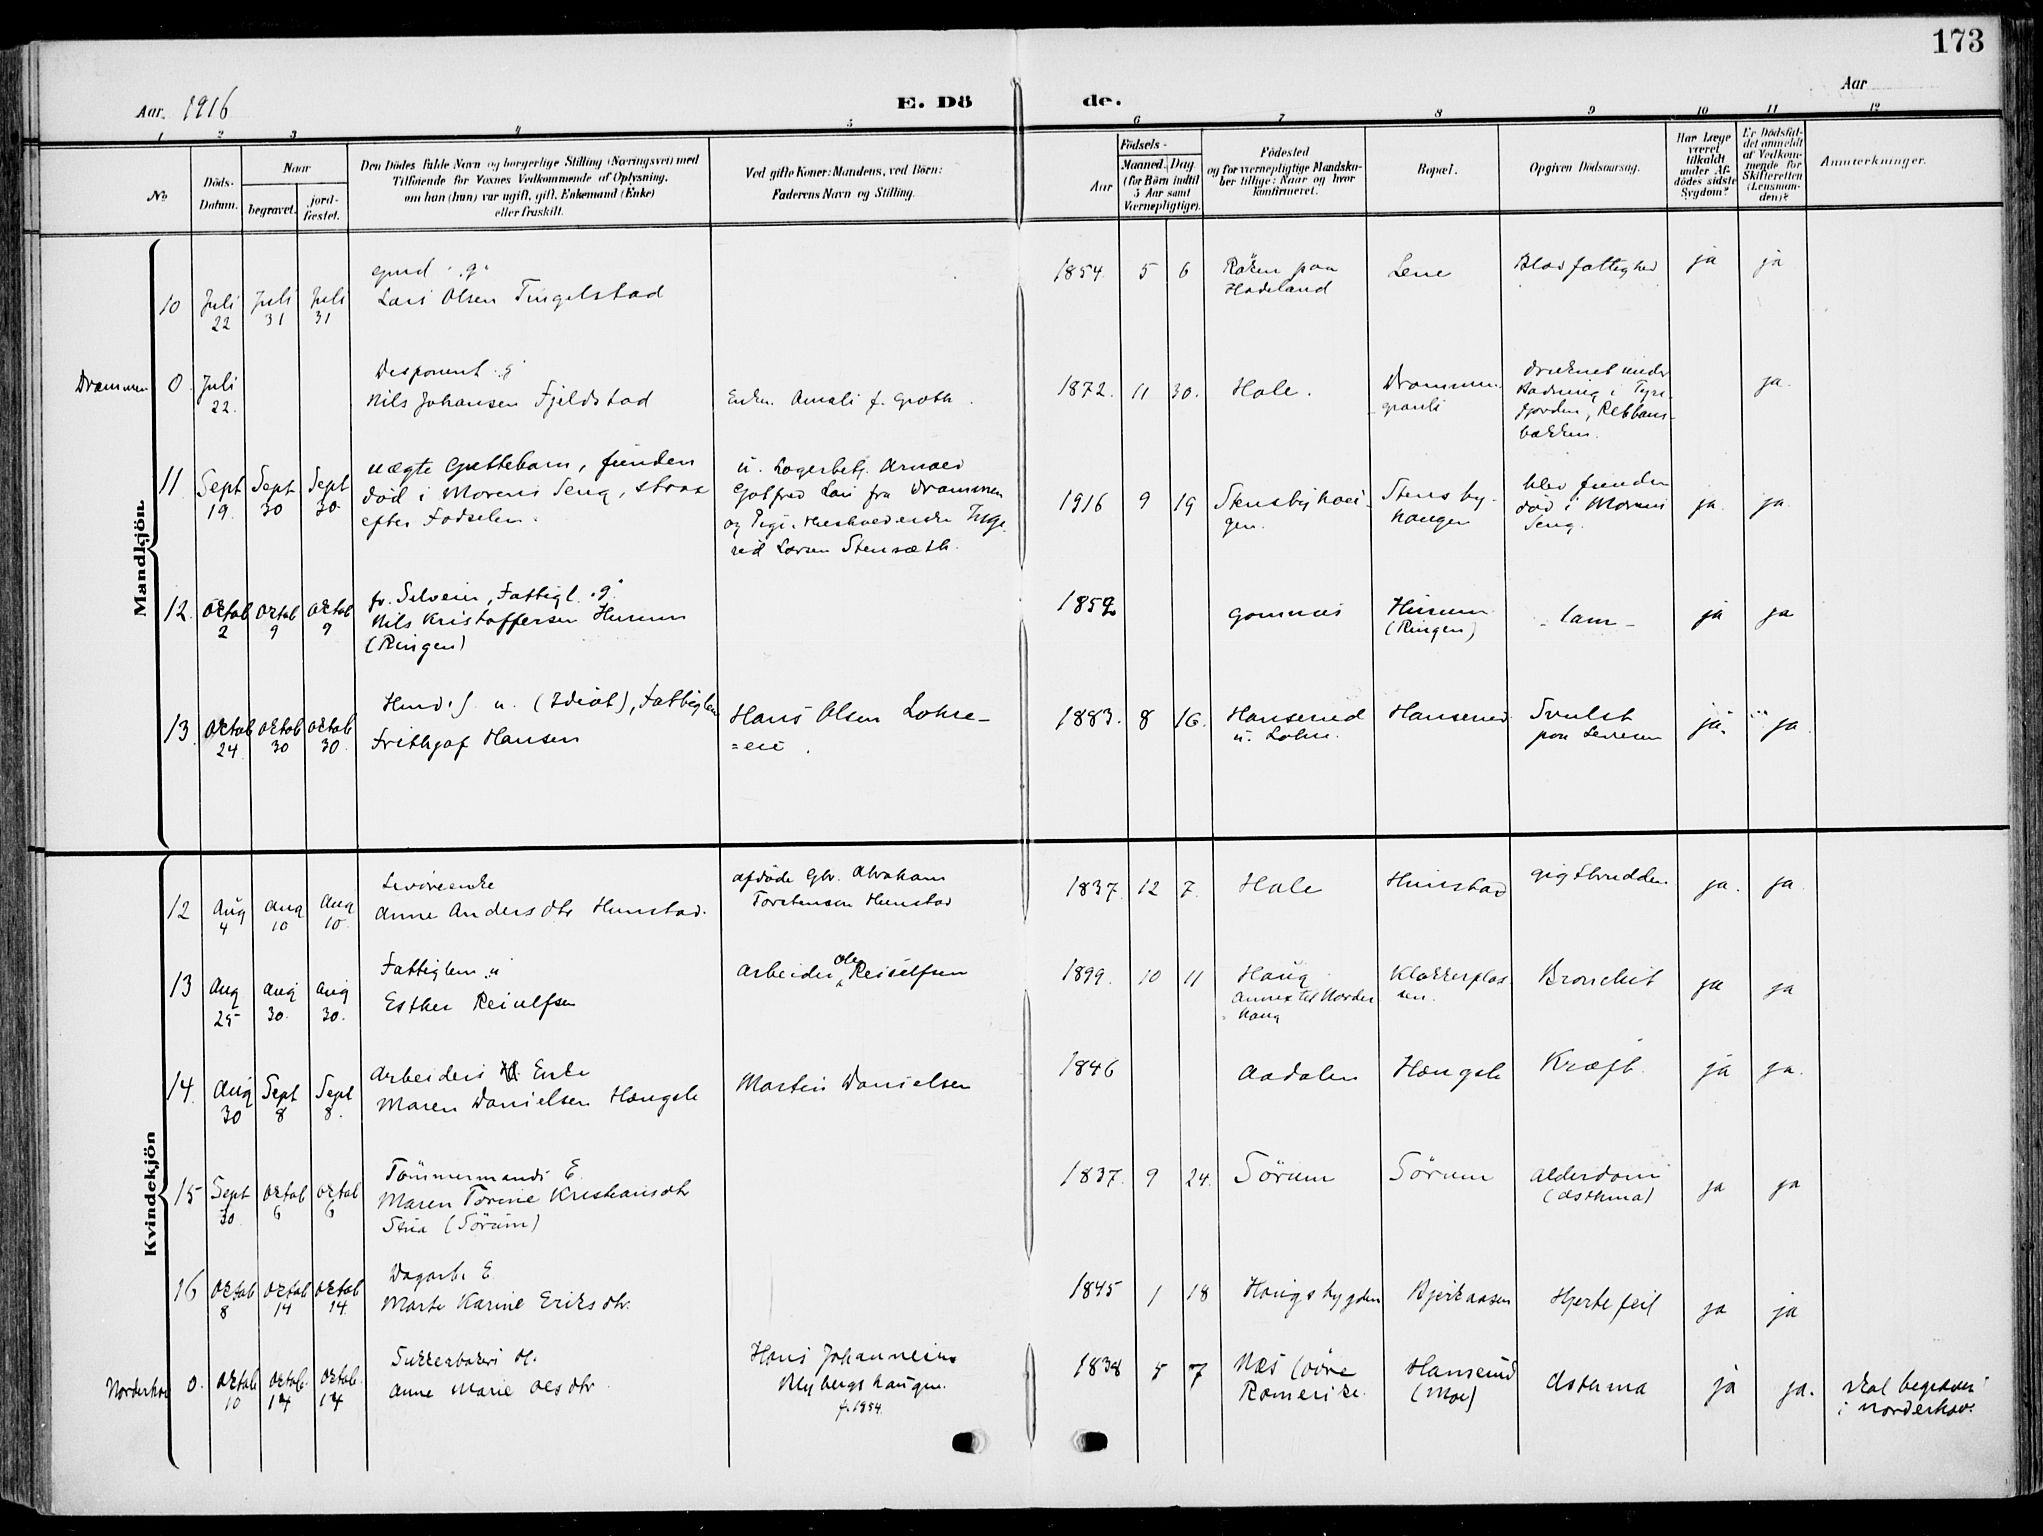 173
Aar. 1916
E. Dö de.
Aar
1 2 3 4 5 6 7 8 9 10 11 12
No.
Döds-Datum.
Naar
begravet.
jord-fæstet.
Den Dödes fulde Navn og borgerlige Stilling (Næringsvei) med
Tilföiende for Voxnes Vedkommende af Oplysning,
om han (hun) var ugift, gift, Enkemand (Enke)
eller fraskilt.
Ved gifte Koner: Mandens, ved Börn:
Faderens Navn og Stilling.
Födsels-
Aar
Maaned. Dag
(for Börn indtil
5 Aar samt
Værnepligtige).
Födested
og for værnepligtige Mandska-
ber tillige: Naar og hvor
konfirmeret.
Bopæl.
Opgiven Dödsaarsag.
Har Læge
været
tilkaldt
under Af-
dödes sidste
Sygdom?
Er Dödsfal-
det anmeldt
af Vedkom-
mende for
Skifteretten
(Lensman-
den)?
Anmærkninger.
Mandkjön.
10 Juli 22 Juli 31 Juli 31
Lars Olsen Tingelstad
1854. 5 6 paa Hadeland Lene Blodfattighed ja ja
Drammen 0 Juli 22.
Disponent g
Nils Johansen Fjeldstad
Enken Amali f. Groth.
1872. 11 30. Hole. Drammen druknet under
Badning i Tyri-
fjorden,
bakken.
ja.
11 Sept 19. Sept 30 Sept 30
uægte Guttebarn, funden
död i Morens Seng, strax
efter Födselen.
u. Lagerbetj. Arnold
Gotfred fra Drammen
og Pige
Larsen Stensæth.
1916 9 19 Stensbyhau-
gen.
Stensby-
haugen
blev funden
död i Morens
Seng.
ja. ja.
12. Oktob 2 Oktob 9 Oktob 9
fv. Selveier, Fattigl. g.
Nils Kristoffersen Hurum
(Ringen)
1852 Gomnes (Ringen) - lam - ja ja
13. Oktob 24. Oktob 30 Oktob 30.
u. (Idiot), Fattiglem
Frithjof Hansen
Hans Olsen Lohre-
=eie.
1883. 8 16. Hanserud
u. Lohre.
Hanserud Svulst
paa Leveren
ja. ja.
Kvindekjön
12 Aug 4 Aug 10 Aug 10.
Anne Andersdtr Hunstad.
afdöde Gbr. Abraham
Torstensen Hunstad
1837. 12 7. Hole Hunstad ja. ja.
13 Aug 25 Aug 30. Aug 30.
Fattiglem u
Esther Reiulfsen
Arbeider Ole Reiulfsen
1899. 10 11 Haug
Annex til Norder
=haug
Klokkerplas-
sen.
Bronchit ja ja
14. Aug 30 Sept 8 Sept 8.
Arbeiders Enke
Maren Danielsen Hængsle
Martin Danielsen
1846 Aadalen Hængsle Kræft. ja ja.
15 Sept 30. Oktob 6 Oktob 6
Tömmermands E.
Maren Torine Kristiansdtr
Stua (Sörum)
1837. 9 24. Sörum Sörum Alderdom
(Asthma)
ja ja
16 Oktob 8 Oktob 14 Oktob 14.
Dagarb. E.
Marte Karine Eriksdtr.
1845 1 18 Haugsbygden Bjerkaasen Hjertefeil ja ja
Norderhov 0. Oktob 10 Oktob. 14 Oktob. 14
Sukkerbakers H.
Anne Marie Olsdtr.
Hans Johannesen
Blybergshaugen.
f. 1854.
1838 5 7 Næs övre
Romerike.
Hanserud
(Moe)
Asthma ja ja.
skal begraves
i Norderhov.